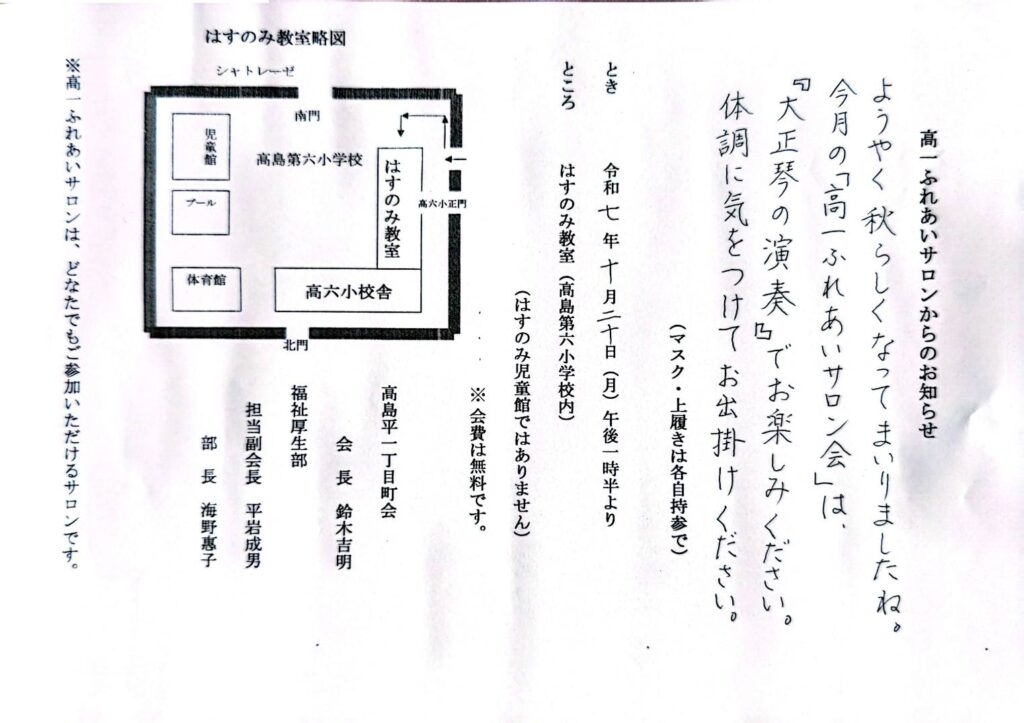 高一ふれあいサロンからのお知らせ
ようやく秋らしくなってまいりましたね。
今月の「高一ふれあいサロン会」は、
『大正琴の演奏』でお楽しみください。
体調に気をつけてお出掛けください。
（マスク・上履きは各自持参で）
とき　令和七年十月二十日（月）午後一時半より
ところ　はすのみ教室（高島第六小学校内）
（はすのみ児童館ではありません）
※会費は無料です。
高島平一丁目町会
会　長　鈴木吉明
福祉厚生部
担当副会長　平岩成男
部　長　海野惠子
はすのみ教室略図
シャトレーゼ
南門
児童館
高島第六小学校
プール
はすのみ教室
高六小正門
体育館
高六小校舎
北門
※高一ふれあいサロンは、どなたでもご参加いただけるサロンです。